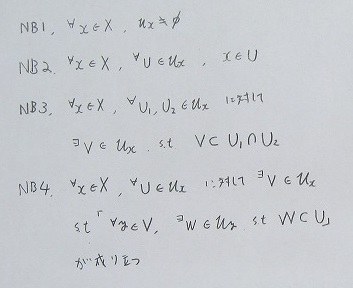 NB1. ∀x∈X, 𝒰x≠∅
NB2. ∀x∈X, ∀U∈𝒰x, x∈U
NB3. ∀x∈X, ∀U₁,U₂∈𝒰x に対して
∃V∈𝒰x. st V⊂U₁∩U₂
NB4. ∀x∈X, ∀U∈𝒰x に対して ∃V∈𝒰x
st「∀y∈V, ∃W∈𝒰y st W⊂U」
が成り立つ